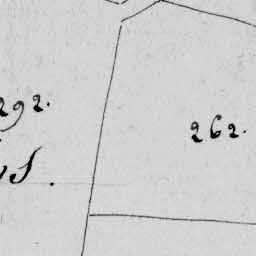 292.
262.